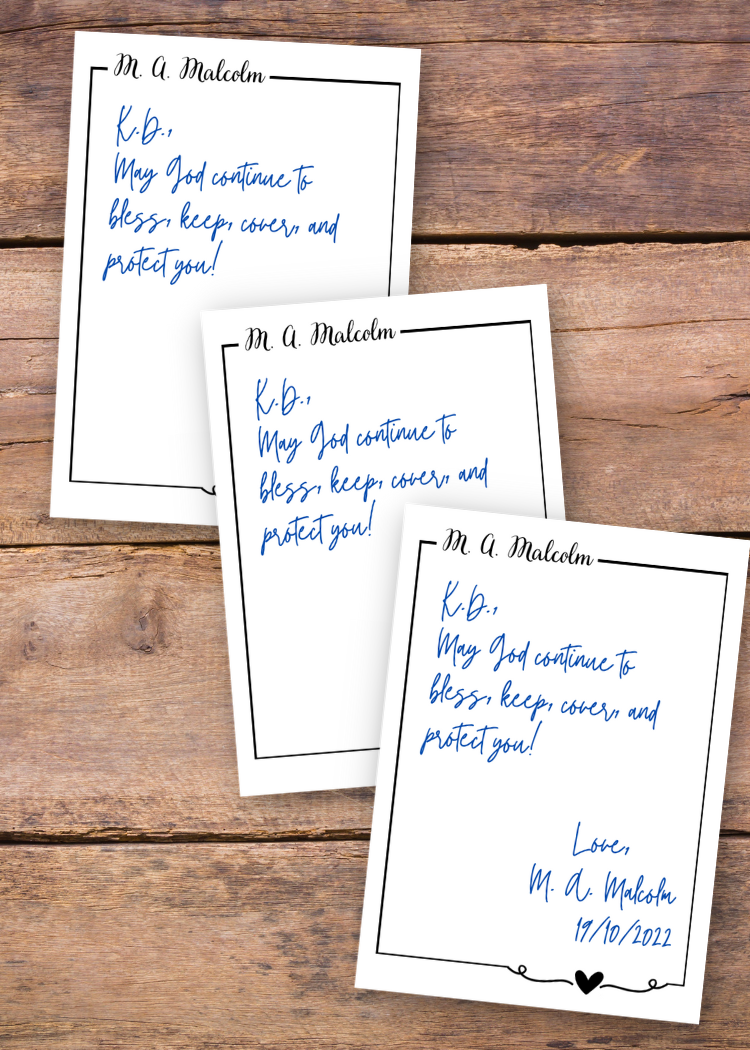 M. A. Malcolm
K.D.,
May God continue to
bless, keep, cover, and
protect you!
M. A. Malcolm
K.D.,
May God continue to
bless, keep, cover, and
protect you!
M. A. Malcolm
K.D.,
May God continue to
bless, keep, cover, and
protect you!
Love,
M. A. Malcolm
19/10/2022